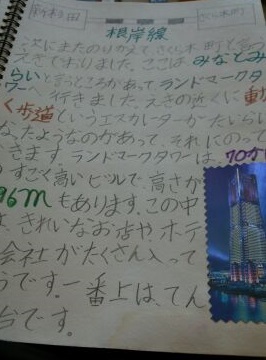 新杉田
さくら木町
根岸線
次にまたのりかえて、さくら木町と言う
えきでおりました。ここは、みなとみ
らいと言うところがあって、ランドマークタ
ワーへ行きました。えきの近くに動
く歩道というエスカレーターがたいらに
なったようなのがあって、それにのって
いきます。ランドマークタワーは、70か
すごく高いビルで、高さが
96mもあります。この中
は、きれいなお店や、ホテ
会社がたくさん入って
うです。一番上は、てん
台です。